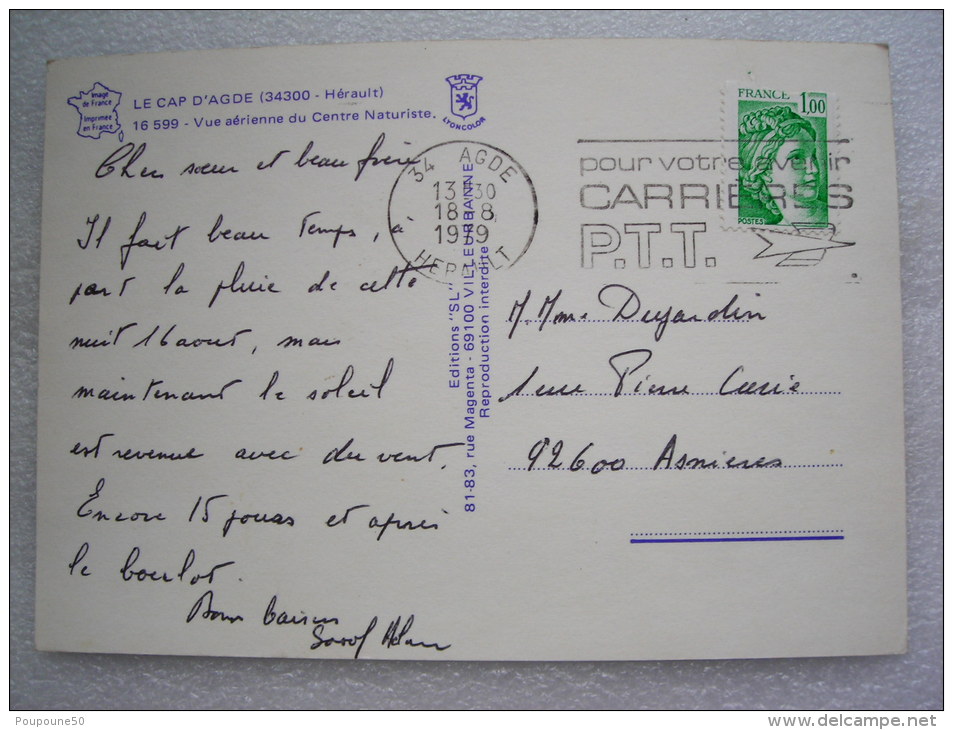 Image de France
Imprimée en France
LE CAP D'AGDE (34300 - Hérault)
16 599 - Vue aérienne du Centre Naturiste.
LYONCOLOR
FRANCE 1,00
POSTES
34 AGDE
13H30
18-8
1979
HERAULT
pour votre avenir
CARRIÈRES
P.T.T.
Cher sœur et beau frère
Il fait beau temps, à
part la pluie de cette
nuit 16 aout, mais
maintenant le soleil
est revenue avec du vent.
Encore 15 jours et après
le boulot.
Bons baisers
Editions "SL"
81-83, rue Magenta - 69100 VILLEURBANNE
Reproduction interdite
M. Mme Dujardin
1 rue Pierre Curie
92600 Asnieres
Poupoune50
www.delcampe.net